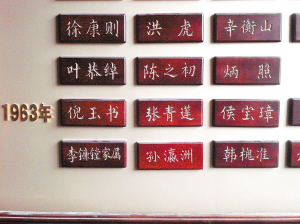 徐康则 洪虎 辛衡山
叶恭绰 陈之初 炳照
1963年 倪玉书 张青莲 侯宝璋
李镰镗家属 孙瀛洲 韩槐准